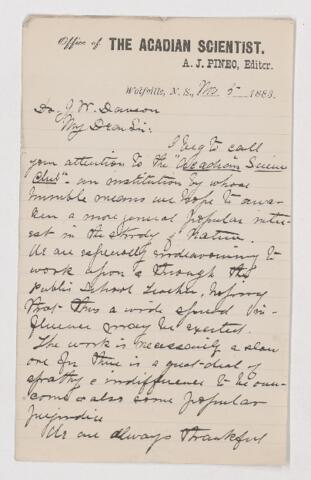 Office of THE ACADIAN SCIENTIST.
A. J. PINEO, Editor.
Wolfville, N. S., 5 1883
J. W. Dawson
My Dear Sir:
I beg to call
your attention to the "Acadian Science
Club" - an institution by whose
humble means we hope to awa-
ken a more general popular inter-
est in the study of Nature.
We are especially endeavouring to
work upon & through the
public School teacher, hoping
that thus a wide spread in-
fluence may be exerted.
The work is necessarily a slow
one for there is a great deal of
apathy & indifference to be over-
come & also some popular
prejudice
We are always thankful